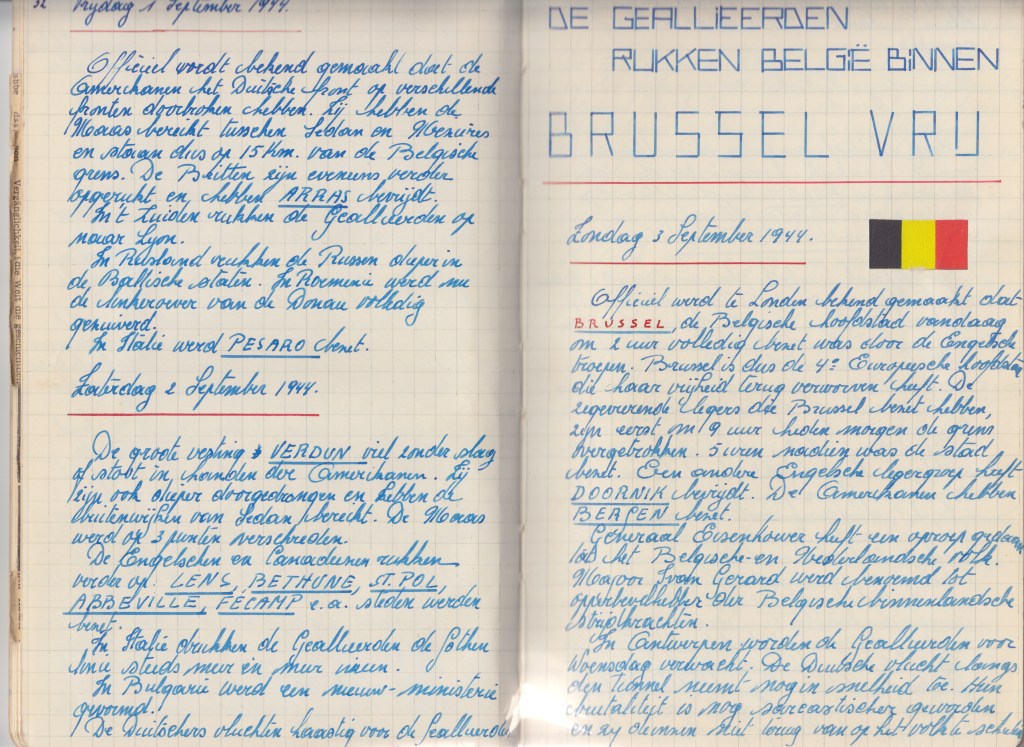 32 Vrijdag 1 September 1944.
Officieel wordt bekend gemaakt dat de
Amerikanen het Duitsche front op verschillende
fronten doorbroken hebben. Zij hebben de
Maas bereikt tusschen Sedan en Mezières
en staan dus op 15 Km. van de Belgische
grens. De Britten zijn eveneens verder
opgerukt en hebben ARRAS bevrijdt.
In 't Zuiden rukken de Geallieerden op
naar Lyon.
In Rusland rukken de Russen dieper in
de Baltische staten. In Roemenië werd nu
de linkeroever van de Donau volledig
gezuiverd.
In Italië werd PESARO bezet.
Zaterdag 2 September 1944.
De groote vesting VERDUN viel zonder slag
of stoot in handen der Amerikanen. Zij
zijn ook dieper doorgedrongen en hebben de
buitenwijken van Sedan bereikt. De Maas
werd op 3 punten overschreden.
De Engelschen en Canadeezen rukken
verder op. LENS, BETHUNE, ST. POL,
ABBEVILLE, FÉCAMP e.a. steden werden
bezet.
In Italië drukken de Geallieerden de Gothen
linie steeds meer en meer ineen.
In Bulgarie werd een nieuw-ministerie
gevormd.
De Duitschers vluchten haastig voor de Geallieerden
DE GEALLIEERDEN
RUKKEN BELGIË BINNEN
BRUSSEL VRIJ
Zondag 3 September 1944.
Officiel werd te Londen bekend gemaakt dat
BRUSSEL, de Belgische hoofdstad vandaag
om 2 uur volledig bezet was door de Engelsche
troepen. Brussel is dus de 4e Europeesche hoofdstad
die haar vrijheid terug verworven heeft. De
zegevierende legers die Brussel bezet hebben,
zijn eerst om 9 uur heden morgen de grens
overgetrokken. 5 uren nadien was de stad
bezet. Een andere Engelsche legergroep heeft
DOORNIK bevrijdt. De Amerikanen hebben
BERGEN bezet.
Generaal Eisenhower heeft een oproep gedaan
tot het Belgische-en Nederlandsche volk.
Majoor Ivan Gerard werd benoemd tot
opperbevelhebber der Belgische binnenlandsche
strijdkrachten.
In Antwerpen worden de Geallieerden voor
Woensdag verwacht. De Duitsche vlucht langs
den tunnel neemt nog in snelheid toe. Hun
brutaliteit is nog sarcastischer geworden
en zy deinzen niet terug van op het volk te